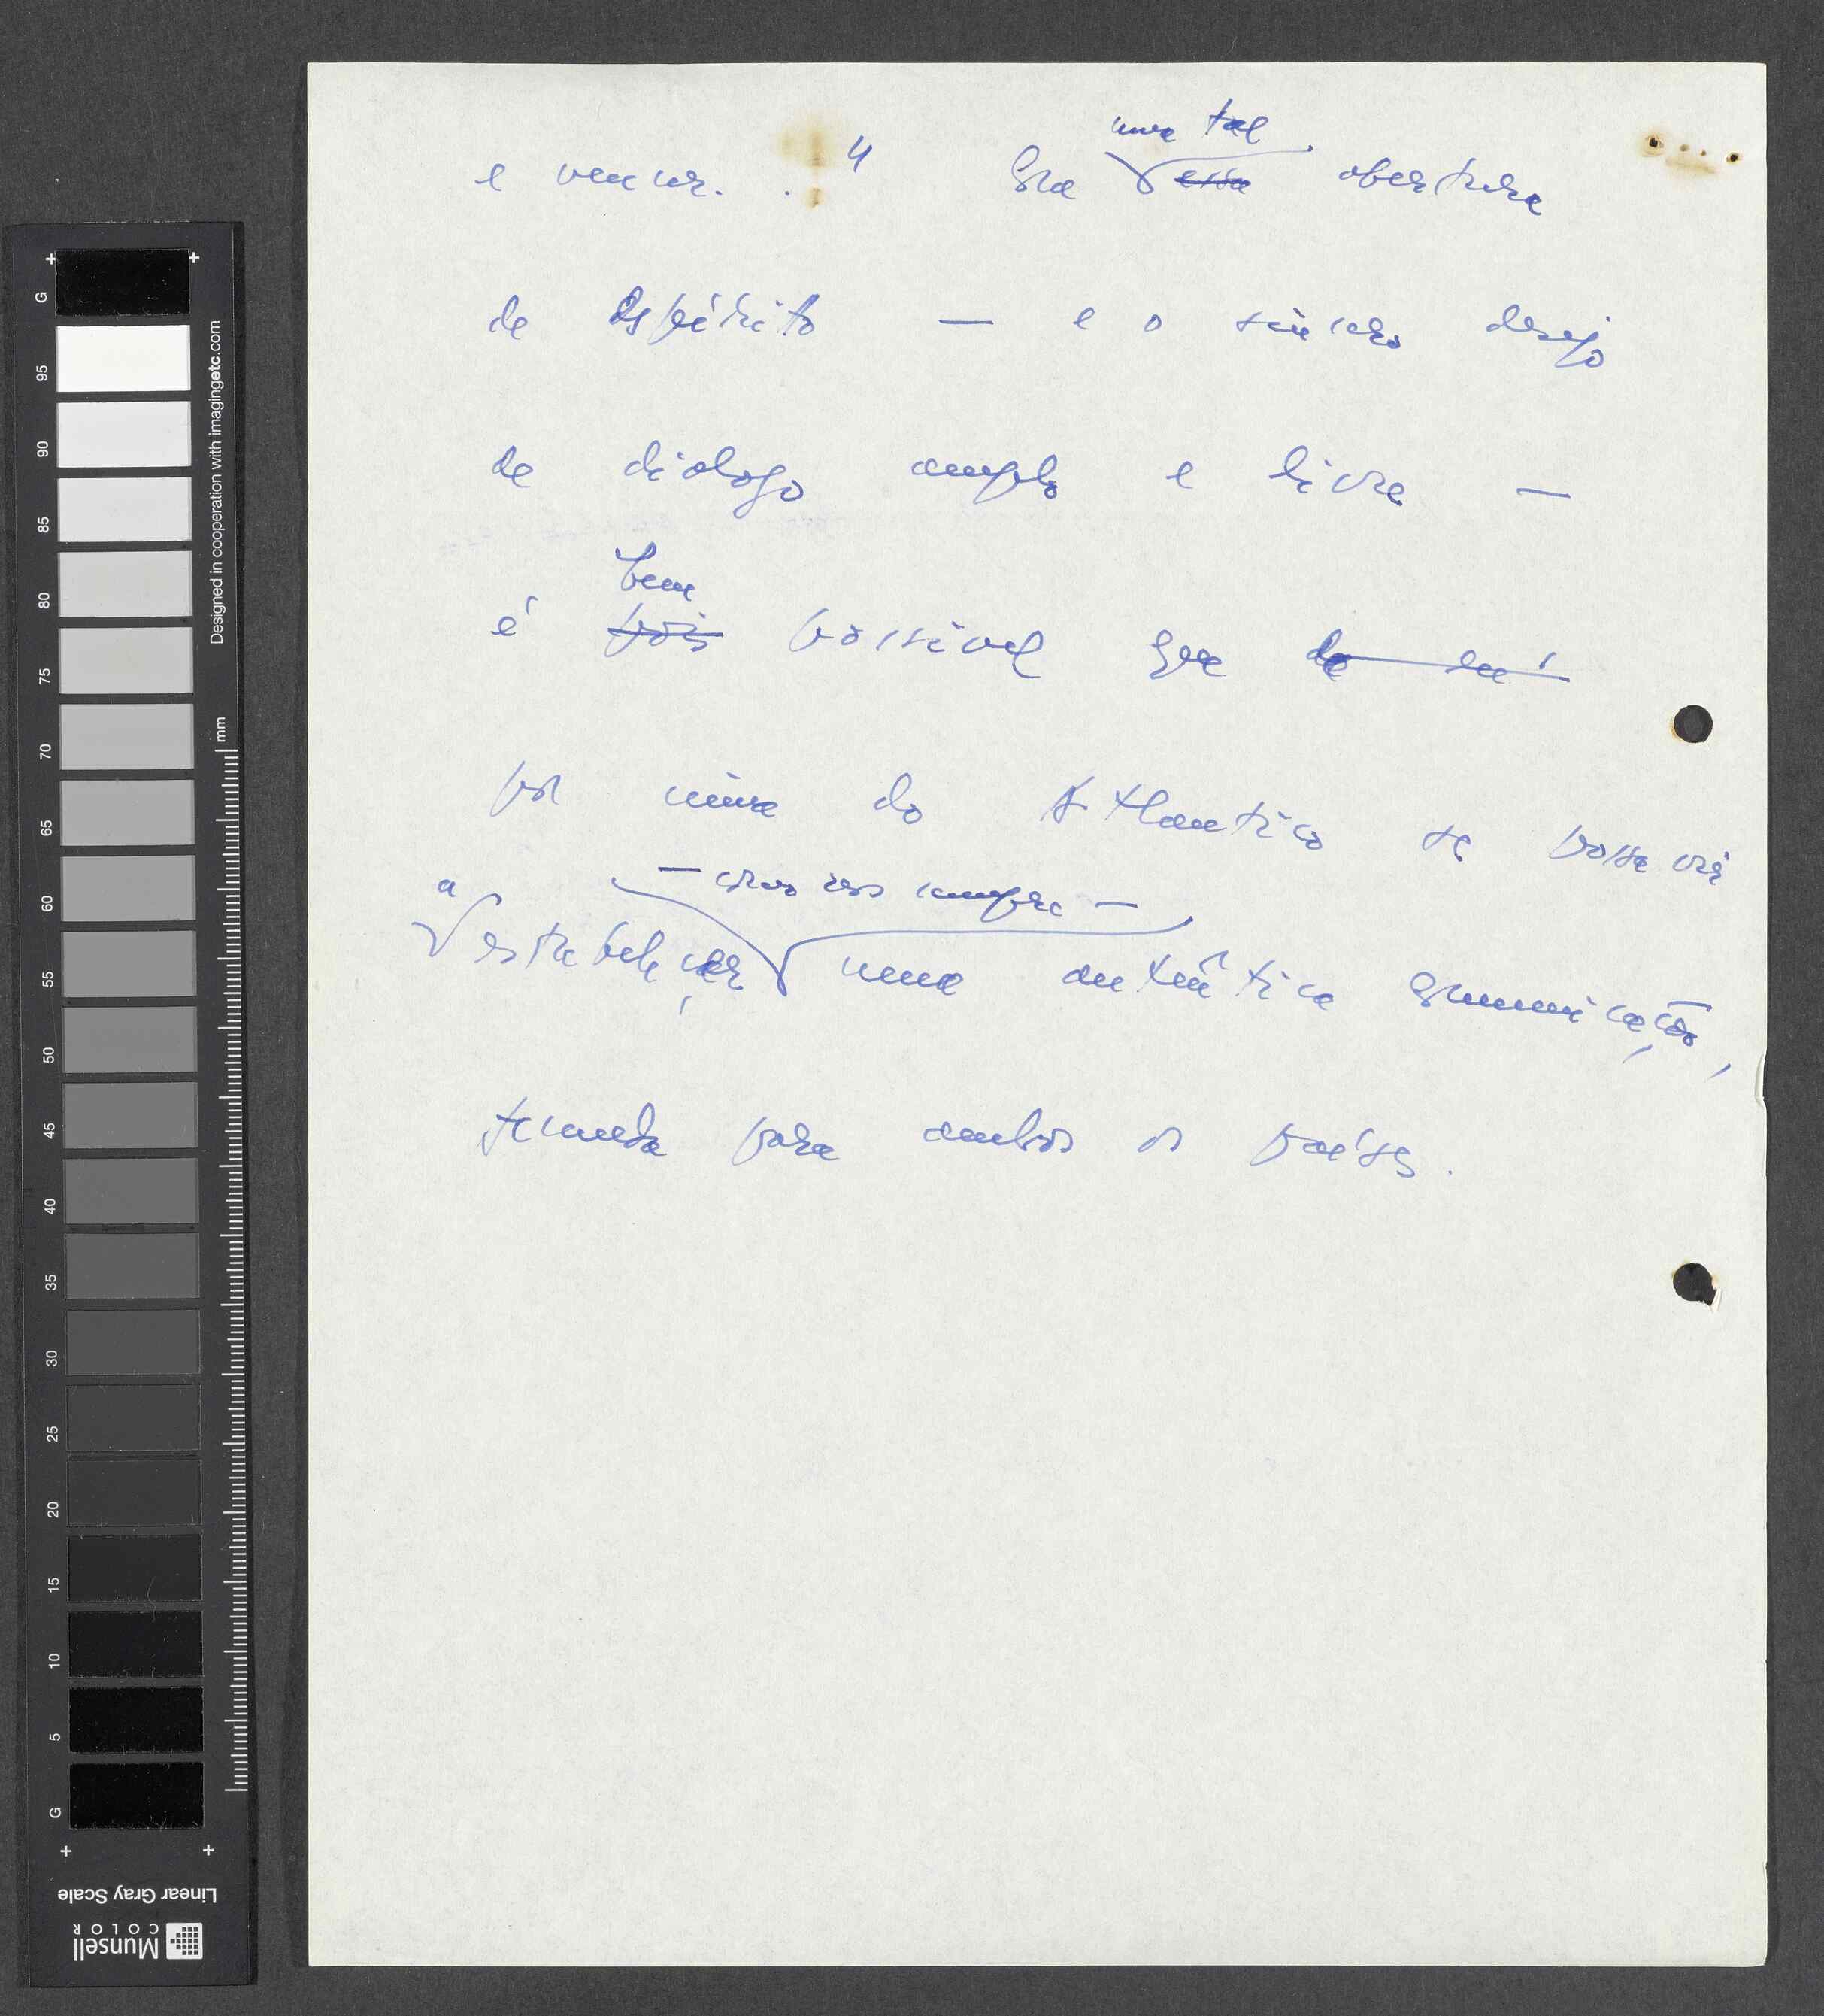 e vencer. . " Com uma tal
essa abertura
de espírito — e o sincero desejo
de diálogo amplo e livre —
bem
é pois possível que de cá
por cima do Atlântico se possa vir
a — uma vez sempre —
estabelecer uma autêntica comunicação,
fecunda para ambos os países.
G 95 90 85 80 75 70 65 60 55 50 45 40 35 30 25 20 15 10 5 G
mm
Designed in cooperation with imagingetc.com
Linear Gray Scale
Munsell
COLOR